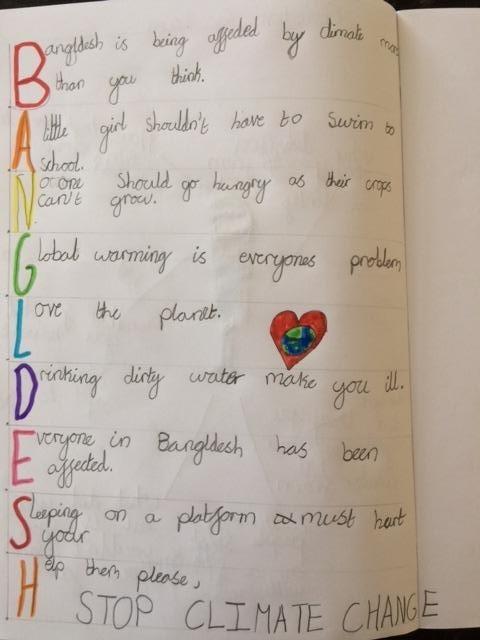 Bangldesh is being affeded by climate more
than you think.
A little girl shouldn't have to swim to
school.
No one should go hungry as their crops
can't grow.
Global warming is everyones problem
Love the planet.
Drinking dirty water make you ill.
Everyone in Bangldesh has been
affected.
Sleeping on a platform must hurt
your
Help them please,
STOP CLIMATE CHANGE